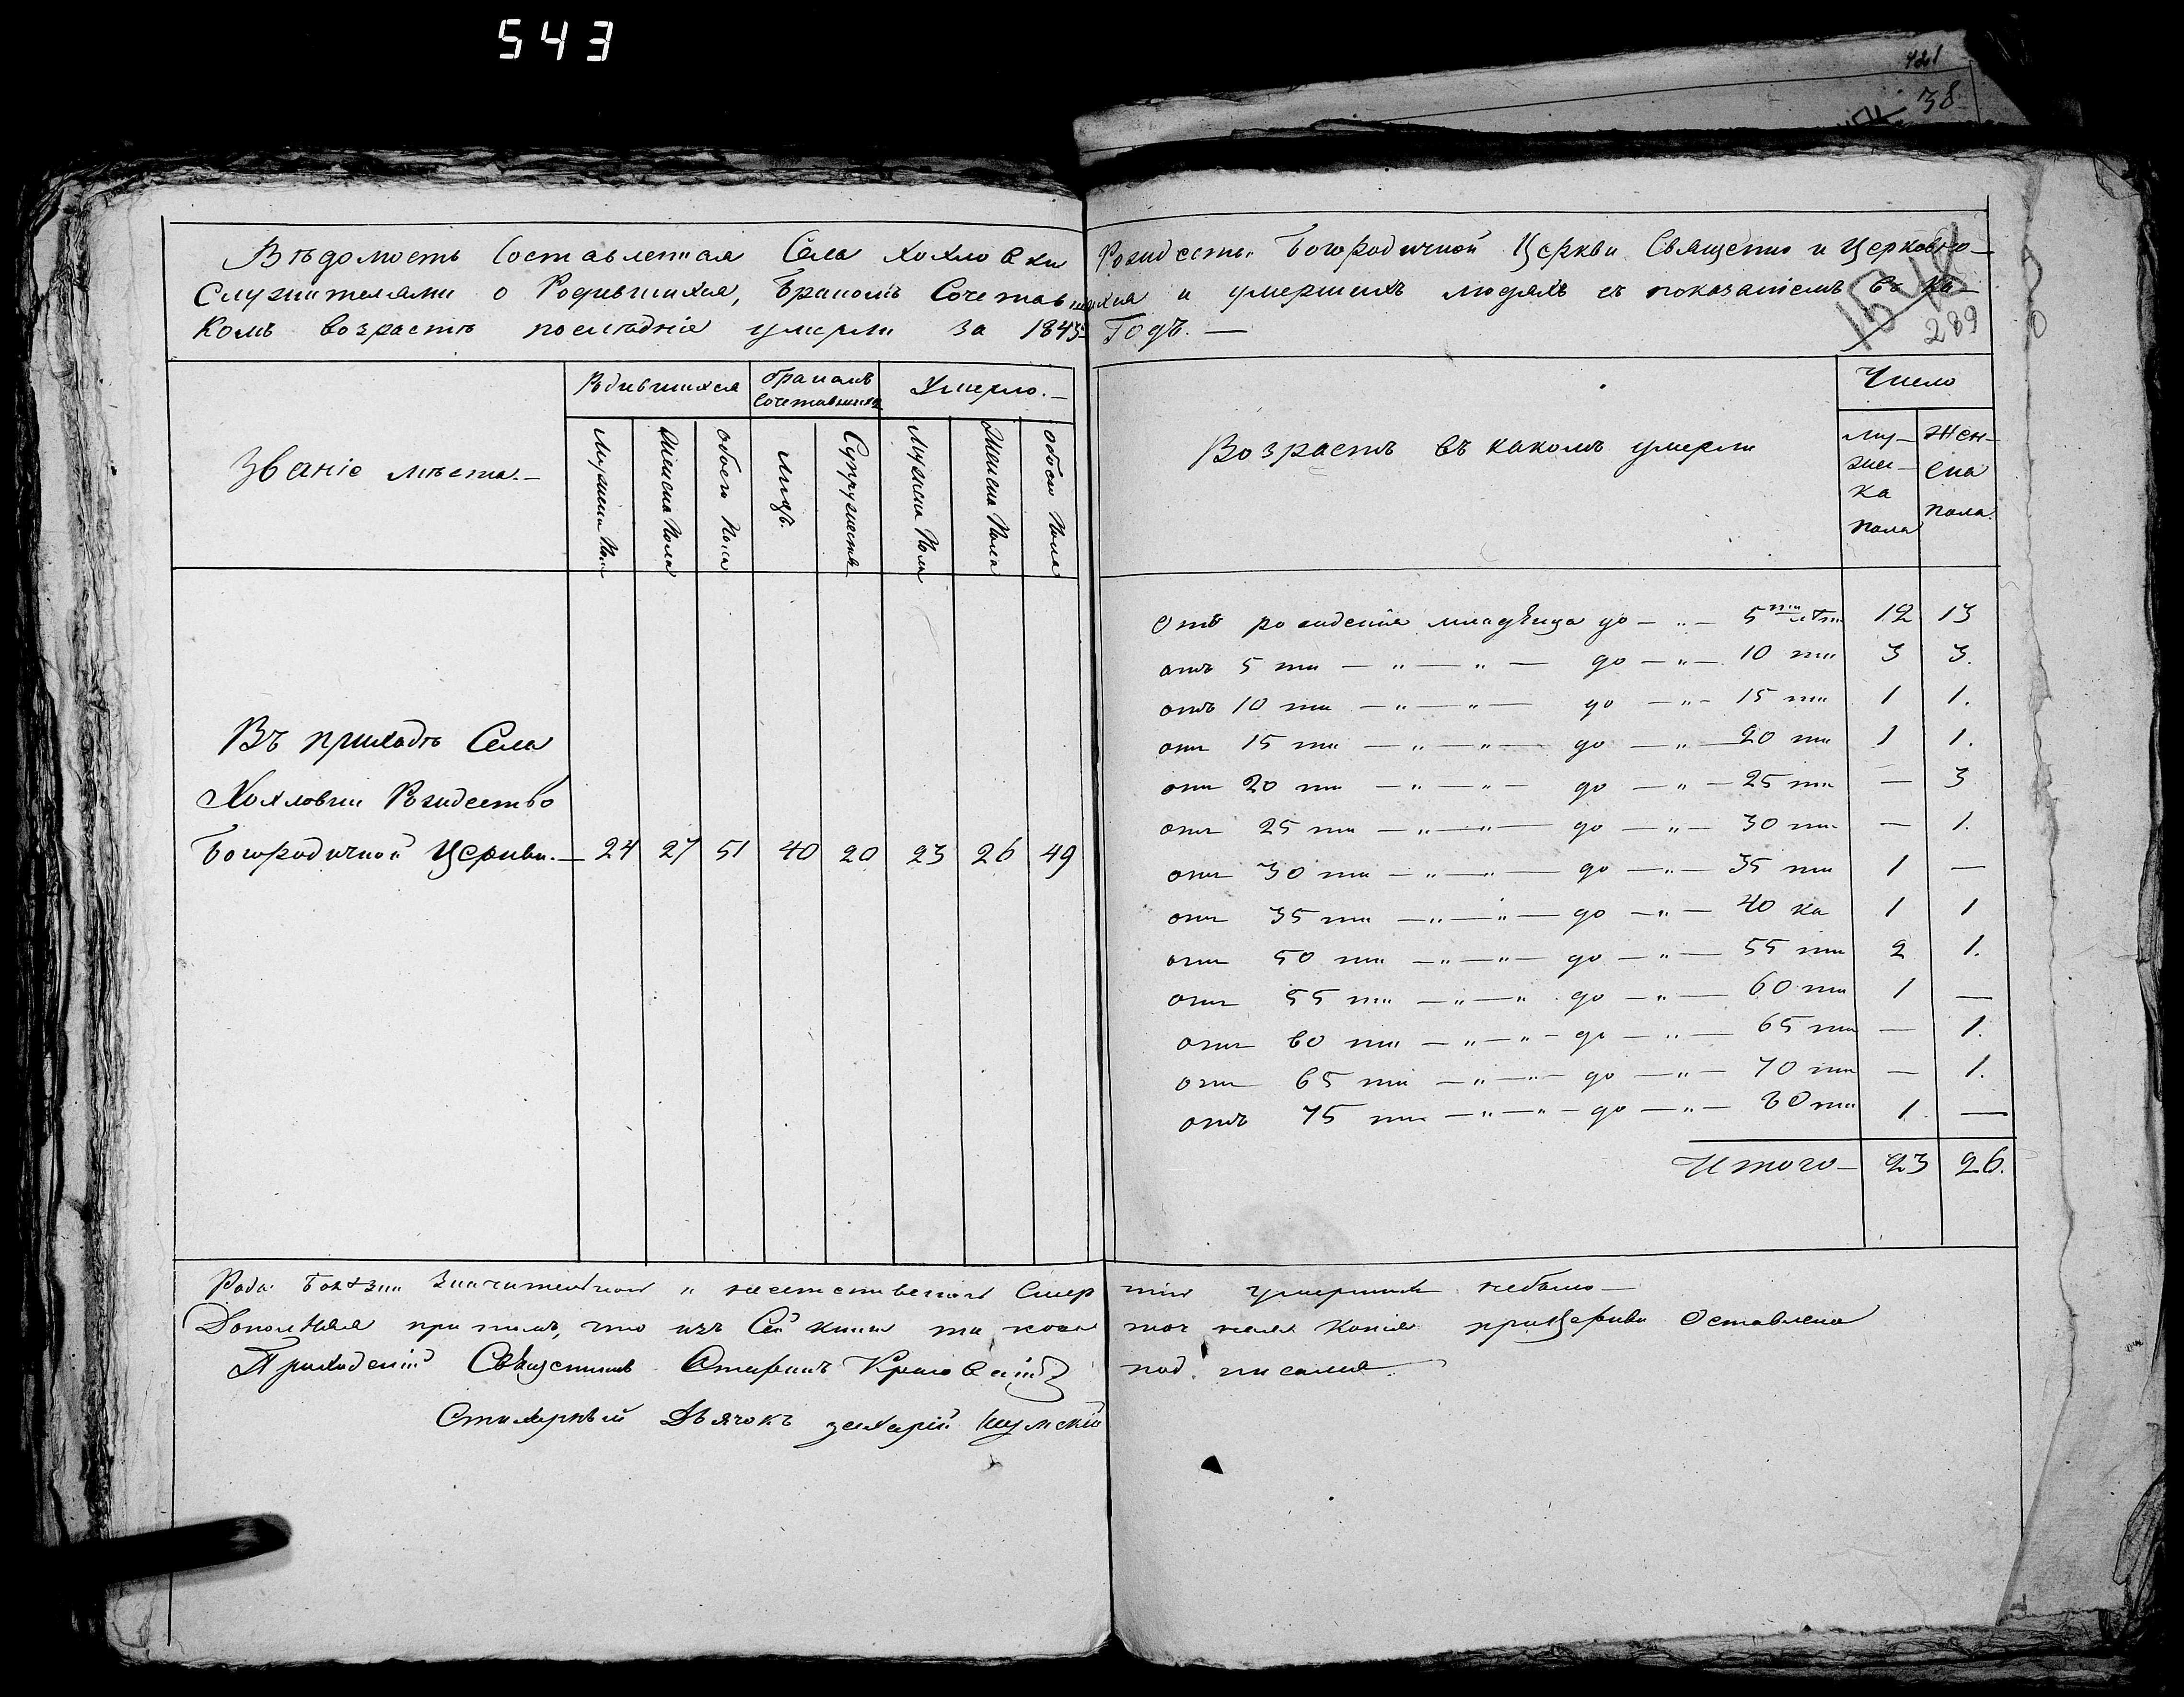 543
421
38
Вѣдомость Составленная Села Хохловки Рождество Богородичной Церкви Священно и Церковно-
Служителями о Родившихся, Бракомъ Сочетавшихся и умершихъ людяхъ съ показаніемъ въ ка-
комъ возрастѣ последніе умерли За 1843й Годъ. —
289
Званіе мѣста. —
Родившихся
Бракомъ Сочетавшихся
Умерло. —
Мужска Пола
Женска Пола
Обоего Пола
Лицъ.
Супружествъ
Мужска Пола
Женска Пола
Обоего Пола
Возрастъ въ какомъ умерли
Число
му-
жес-
ка
пола
жен-
ска
пола.
Въ приходѣ Села
Хохловки Рождество
Богородичной Церкви. — 24 27 51 40 20 23 26 49
Отъ рожденія младѣнца до — " — 5ти лѣтъ 12 13
отъ 5 ти — " — " — до — " — 10 ти 3 3.
отъ 10 ти — " — " — до — " — 15 ти 1 1.
отъ 15 ти — " — " — до — " — 20 ти 1 1.
отъ 20 ти — " — " — до — " — 25 ти — 3
отъ 25 ти — " — " — до — " — 30 ти — 1.
отъ 30 ти — " — " — до — " — 35 ти 1 —
отъ 35 ти — " — " — до — " — 40 ка 1 1
отъ 50 ти — " — " — до — " — 55 ти 2 1.
отъ 55 ти — " — " до — " — 60 ти 1 —
отъ 60 ти — " — " — до — " — 65 ти — 1.
отъ 65 ти — " — " — до — " — 70 ти — 1.
отъ 75 ти — " — " — до — " — 80 ти 1. —
Итого — 23 26.
Рода Болѣзни Значительной и неестественной Смертію умершихъ небыло —
Дополняя притомъ, что изъ Сей книги точная Копія прицеркви Оставлена
Приходскій Священникъ Стефанъ подписался.
Стихарный Дьячокъ Захарій Шумскій